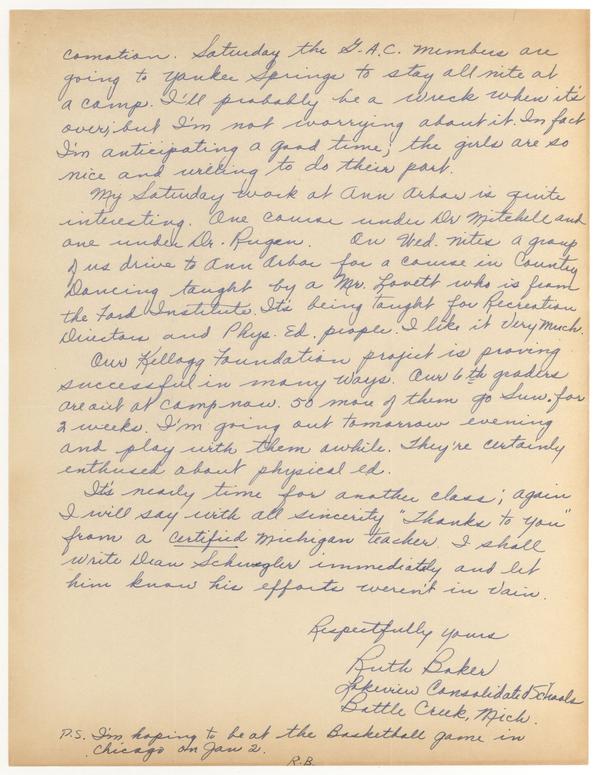 comotion. Saturday the G.A.C. members are
going to Yankee Springs to stay all nite at
a camp. I'll probably be a wreck when it's
over; but I'm not worrying about it. In fact
I'm anticipating a good time; the girls are so
nice and willing to do their part.
My Saturday work at Ann Arbor is quite
interesting. One course under Dr Mitchell and
one under Dr. Rugen. On Wed. nites a group
of us drive to Ann Arbor for a course in Country
Dancing taught by a Mr. Lovett who is from
the Ford Institute. It's being taught for Recreation
Directors and Phys. Ed. people. I like it very much.
Our Kellogg Foundation project is proving
successful in many ways. Our 6th graders
are out at camp now. 50 more of them go Sun. for
2 weeks. I'm going out tomorrow evening
and play with them awhile. They're certainly
enthused about physical ed.
It's nearly time for another class; again
I will say with all sincerity "Thanks to you"
from a certified Michigan teacher. I shall
write Dean immediately and let
him know his efforts weren't in vain.
Respectfully yours
Ruth Baker
Lakeview Consolidated Schools
Battle Creek, Mich.
P.S. I'm hoping to be at the Basketball game in
Chicago on Jan 2.
R.B.